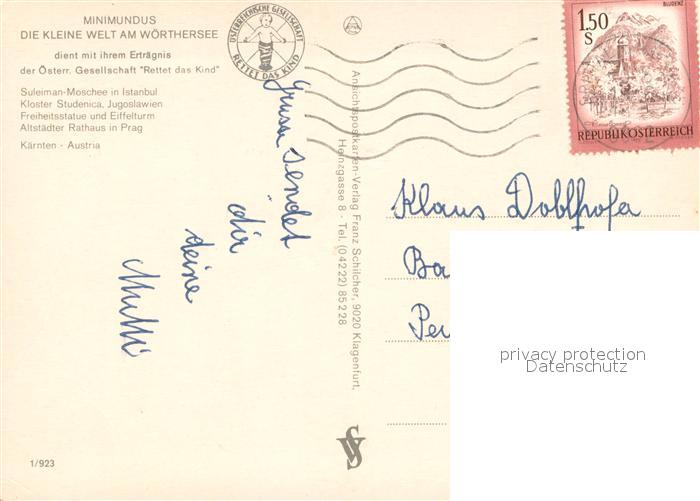 MINIMUNDUS
DIE KLEINE WELT AM WÖRTHERSEE
dient mit ihrem Erträgnis
der Österr. Gesellschaft "Rettet das Kind"
Suleiman-Moschee in Istanbul
Kloster Studenica, Jugoslawien
Freiheitsstatue und Eiffelturm
Altstädter Rathaus in Prag
Kärnten - Austria
ÖSTERREICHISCHE GESELLSCHAFT
RETTET DAS KIND
Grüsse sendet
dir
deine
Mutti
Ansichtspostkarten-Verlag Franz Schilcher, 9020 Klagenfurt,
Heinzgasse 8 - Tel. (04222) 85228
BLUDENZ
1.50
S
REPUBLIK ÖSTERREICH
Klaus
Ba
Pe
privacy protection
Datenschutz
1/923